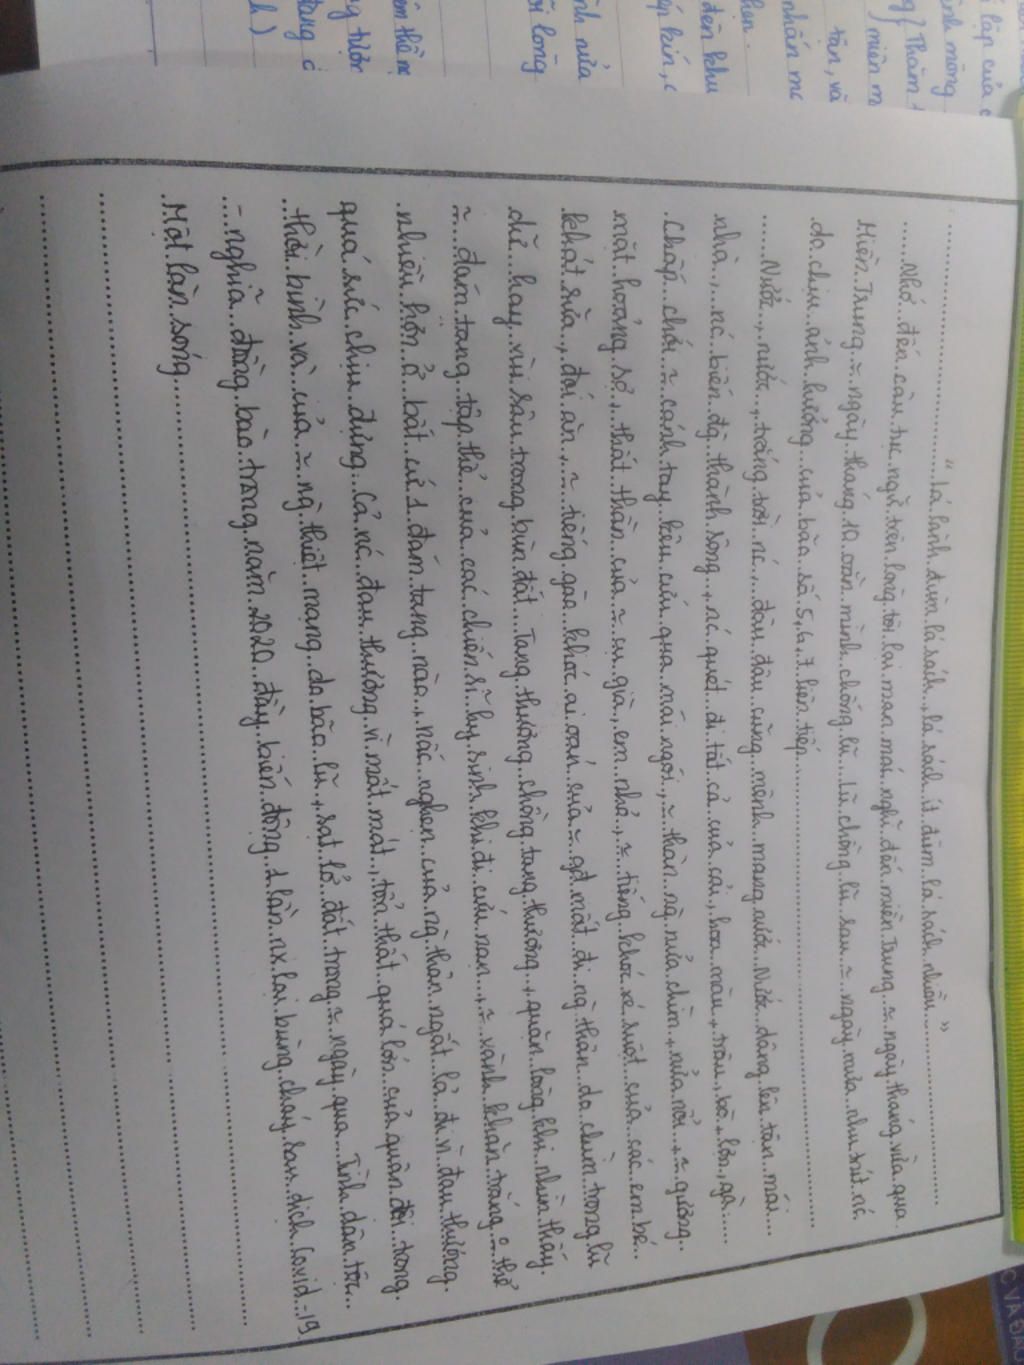 "... lá lành đùm lá rách, lá rách ít đùm lá rách nhiều..."
Nhớ đến câu tục ngữ trên lòng tôi lại man mác nghĩ đến miền Trung ~ ngày tháng vừa qua.
Miền Trung ~ ngày tháng 10 oằn mình chống lũ... lũ chồng lũ sau ~ ngày mưa như trút nc
do chịu ảnh hưởng của bão số 5, 6, 7 liên tiếp
Nước, nước, trắng trời nc, đâu đâu cũng mênh mang nước. Nước dâng lên tận mái
nhà, nc biến đg thành sông, nc quét đi tất cả của cải, hoa màu, trâu, bò, lợn, gà...
Chấp chới ~ cánh tay kêu cứu qua mái ngói, ~ thân ng nửa chìm, nửa nổi, ~ gương
mặt hoảng sợ, thất thần của ~ cụ già, em nhỏ, ~ tiếng khóc xé ruột của các em bé
khát sữa, đói ăn, ~ tiếng gào khóc ai oán của ~ gđ mất đi ng thân do chìm trong lũ
dữ hay vùi sâu trong bùn đất. Tang thương chồng tang thương, quặn lòng khi nhìn thấy
~ đám tang tập thể của các chiến sĩ hy sinh khi đi cứu nạn, ~ vành khăn trắng o thể
nhiều hơn ở bất cứ 1 đám tang nào, nấc nghẹn của ng thân ngất lả đi vì đau thương
quá sức chịu đựng. Cả nc đau thương vì mất mát, tổn thất quá lớn của quân đội trong
thời bình và của ~ ng thiệt mạng do bão lũ, sạt lở đất trong ~ ngày qua. Tình dân tộc
- nghĩa đồng bào trong năm 2020 đầy biến động 1 lần nx lại bùng cháy sau dịch Covid-19
Một làn sóng